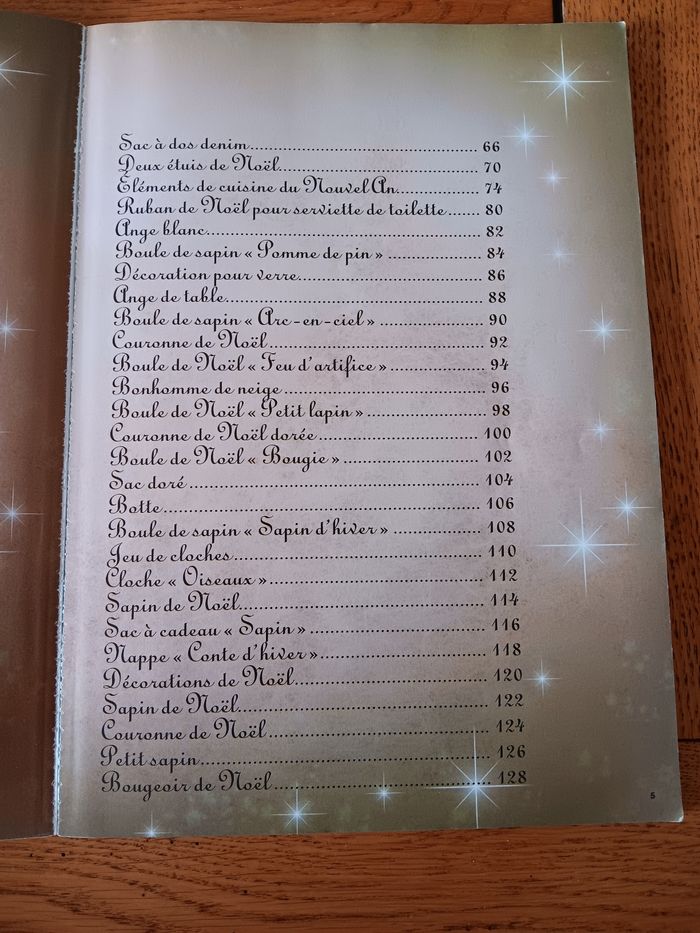 Sac à dos denim........................................................ 66
Deux étuis de Noël.................................................. 70
Eléments de cuisine du Nouvel An..................... 74
Ruban de Noël pour serviette de toilette....... 80
Ange blanc.............................................................. 82
Boule de sapin « Pomme de pin » ....................... 84
Décoration pour verre............................................ 86
Ange de table.......................................................... 88
Boule de sapin « Arc-en-ciel » .......................... 90
Couronne de Noël.................................................... 92
Boule de Noël « Feu d'artifice » ........................ 94
Bonhomme de neige ................................................ 96
Boule de Noël « Petit lapin » .............................. 98
Couronne de Noël dorée........................................ 100
Boule de Noël « Bougie » .................................... 102
Sac doré .................................................................. 104
Botte........................................................................ 106
Boule de sapin « Sapin d'hiver » ....................... 108
Jeu de cloches.......................................................... 110
Cloche « Oiseaux » .................................................. 112
Sapin de Noël.......................................................... 114
Sac à cadeau « Sapin » .......................................... 116
Nappe « Conte d'hiver »........................................ 118
Décorations de Noël.............................................. 120
Sapin de Noël.......................................................... 122
Couronne de Noël .................................................... 124
Petit sapin................................................................ 126
Bougeoir de Noël .................................................... 128
5